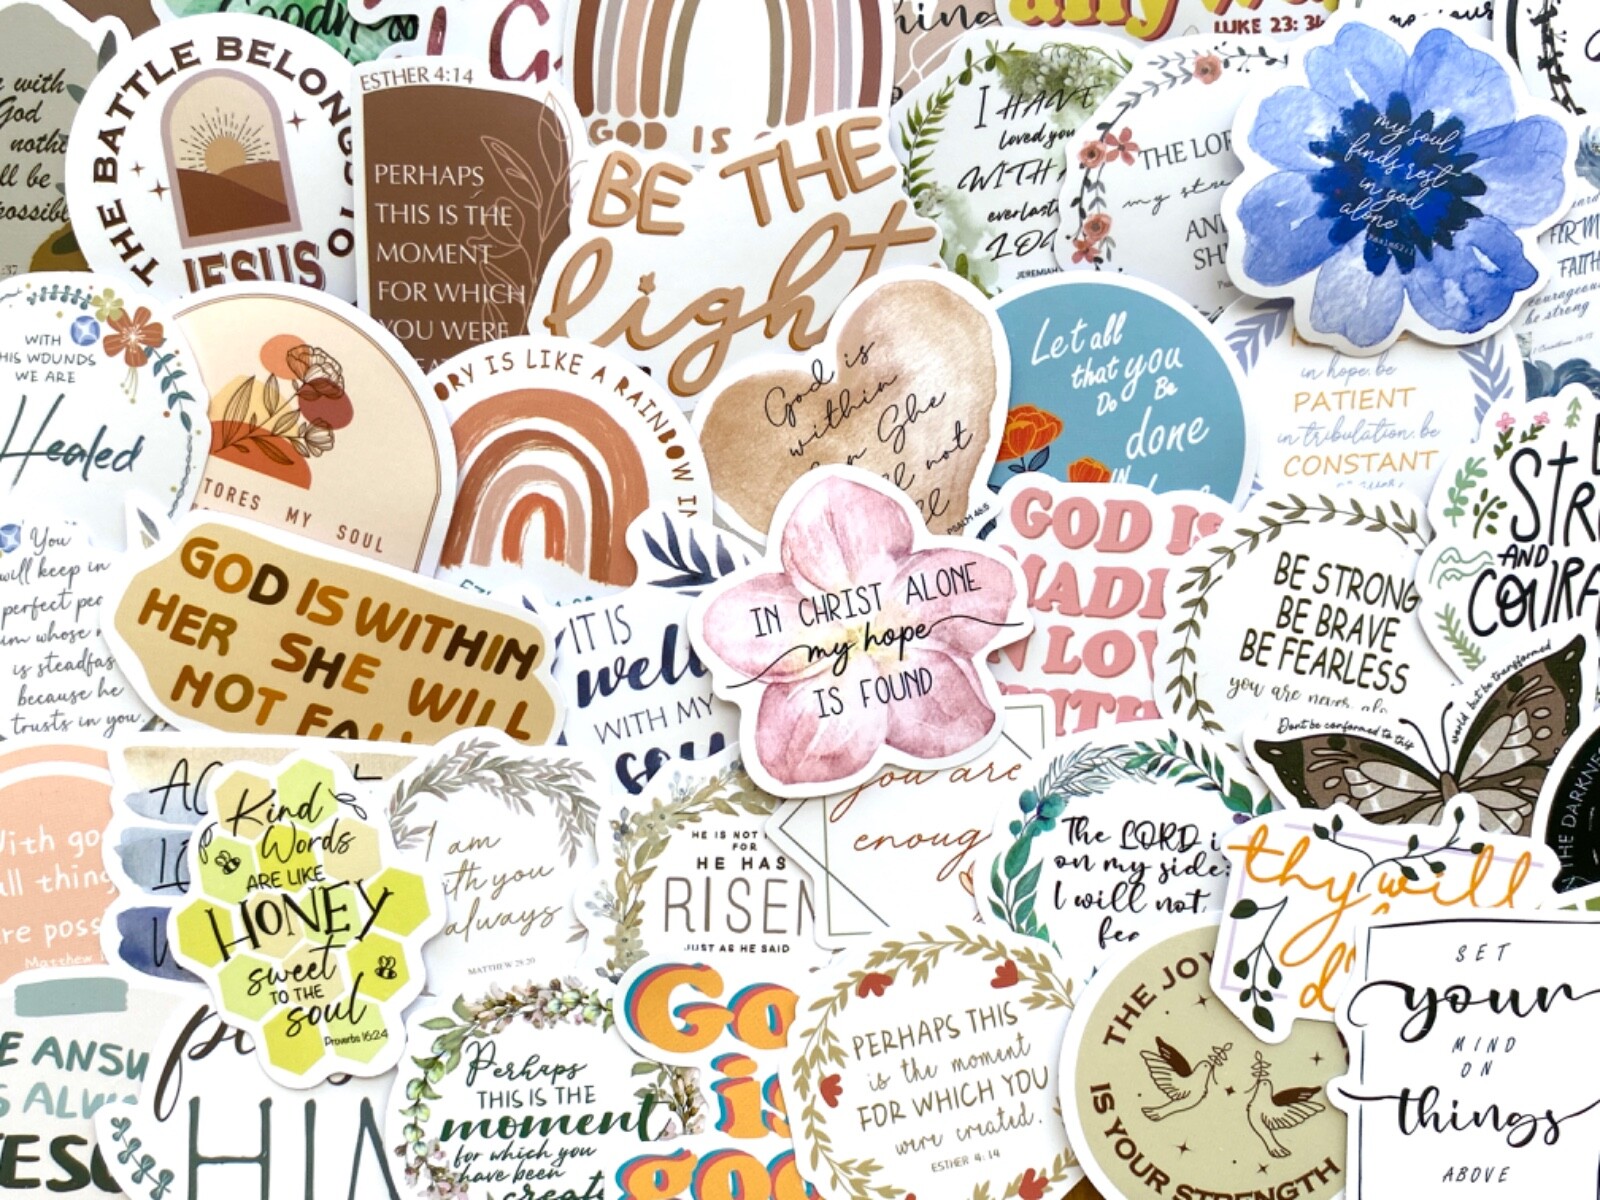 LUKE 23: 34
THE BATTLE BELONGS TO
JESUS
ESTHER 4:14
PERHAPS
THIS IS THE
MOMENT
FOR WHICH
YOU WERE
GOD IS
BE THE
light
I HAVE
Loved you
WITH
JEREMIAH
THE LOR
AND
my soul
finds rest
in god
alone
FAITH
courageous
be strong
WITH
HIS WOUNDS
WE ARE
Healed
TORES MY SOUL
ORY IS LIKE A RAINBOW IN
God is
within
She
not
PSALM 46:5
Let all
that you
Do Be
done
IN
in hope.be
PATIENT
in tribulation.be
CONSTANT
STR
AND
COURA
You
will keep in
perfect pea
whose
is steadfas
because he
trusts in you.
GOD IS WITHIN
HER SHE WILL
NOT FALL
IT IS
well
WITH MY
soul
IN CHRIST ALONE
my hope
IS FOUND
GOD IS
MADI
N LOV
WITH
BE STRONG
BE BRAVE
BE FEARLESS
you are never alo
Dont be conformed to this
world but be transformed
THE DARKNE
With go
all thing
re poss
Matthew
Kind
Words
ARE LIKE
HONEY
sweet
TO THE
soul
Proverbs 16:24
I am
with you
always
MATTHEW 28:20
HE IS NOT
FOR
HE HAS
RISEN
JUST AS HE SAID
you are
enoug
The LORD i
on my side;
I will not
fea
thy will
d
SET
your
MIND
ON
things
ABOVE
E ANSW
S ALWA
JESU
HIM
Perhaps
THIS IS THE
moment
for which you
have been
create
God
is
good
PERHAPS THIS
is the moment
FOR WHICH YOU
were created.
ESTHER 4:14
THE JOY
IS YOUR STRENGTH